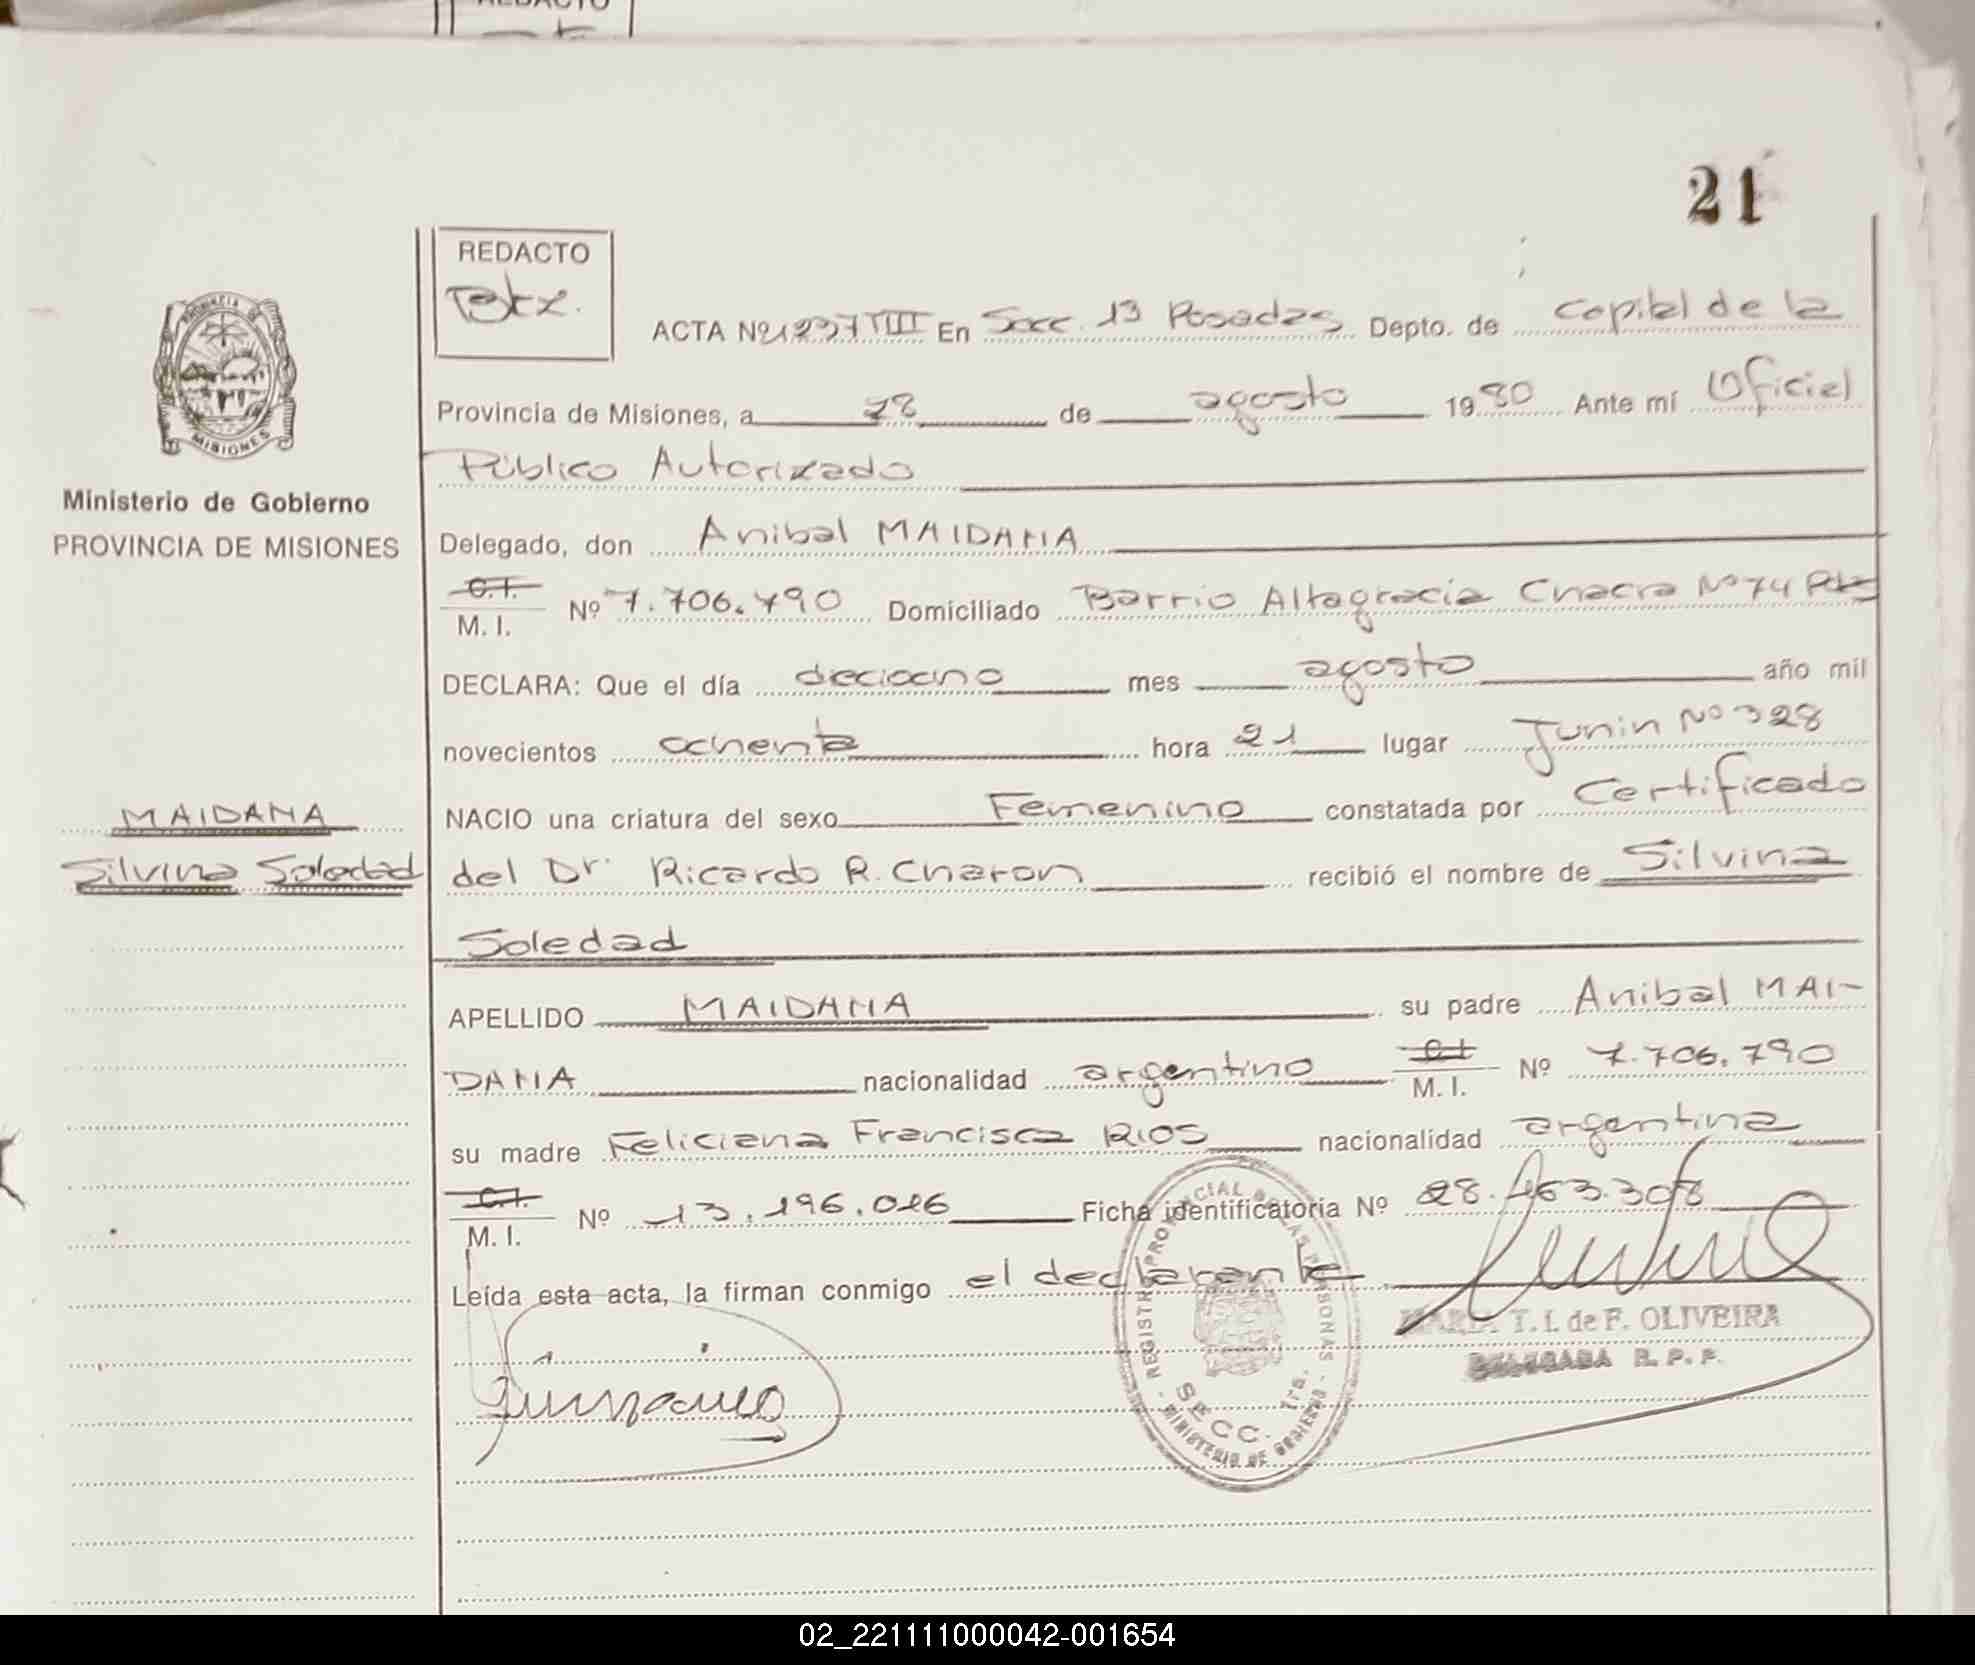 REDACTO
21
REDACTO
Btz.
ACTA Nº 1237 VIII En Secc. 1ª Posadas Depto. de Capital de la
Provincia de Misiones, a 28 de agosto 1980 Ante mí Oficial
Público Autorizado
Ministerio de Gobierno
PROVINCIA DE MISIONES
Delegado, don Anibal MAIDANA
C.I. M.I. Nº 7.706.790 Domiciliado Barrio Altagracia Chacra Nº 74 Pdas
DECLARA: Que el día dieciocho mes agosto año mil
novecientos ochenta hora 21 lugar Junin Nº 328
MAIDANA
NACIO una criatura del sexo Femenino constatada por Certificado
Silvina Soledad
del Dr. Ricardo R. Charon recibió el nombre de Silvina
Soledad
APELLIDO MAIDANA su padre Anibal MAI-
DANA nacionalidad argentino C.I. M.I. Nº 7.706.790
su madre Feliciana Francisca RIOS nacionalidad argentina
C.I. M.I. Nº 13.196.016 Ficha identificatoria Nº 28.463.308
Leída esta acta, la firman conmigo el declarante
MARIA T. I. de F. OLIVEIRA
DELEGADA R. P. P.
REGISTRO PROVINCIAL DE LAS PERSONAS
SECC. 1ra.
MINISTERIO DE GOBIERNO
PROVINCIA DE
MISIONES
02_221111000042-001654